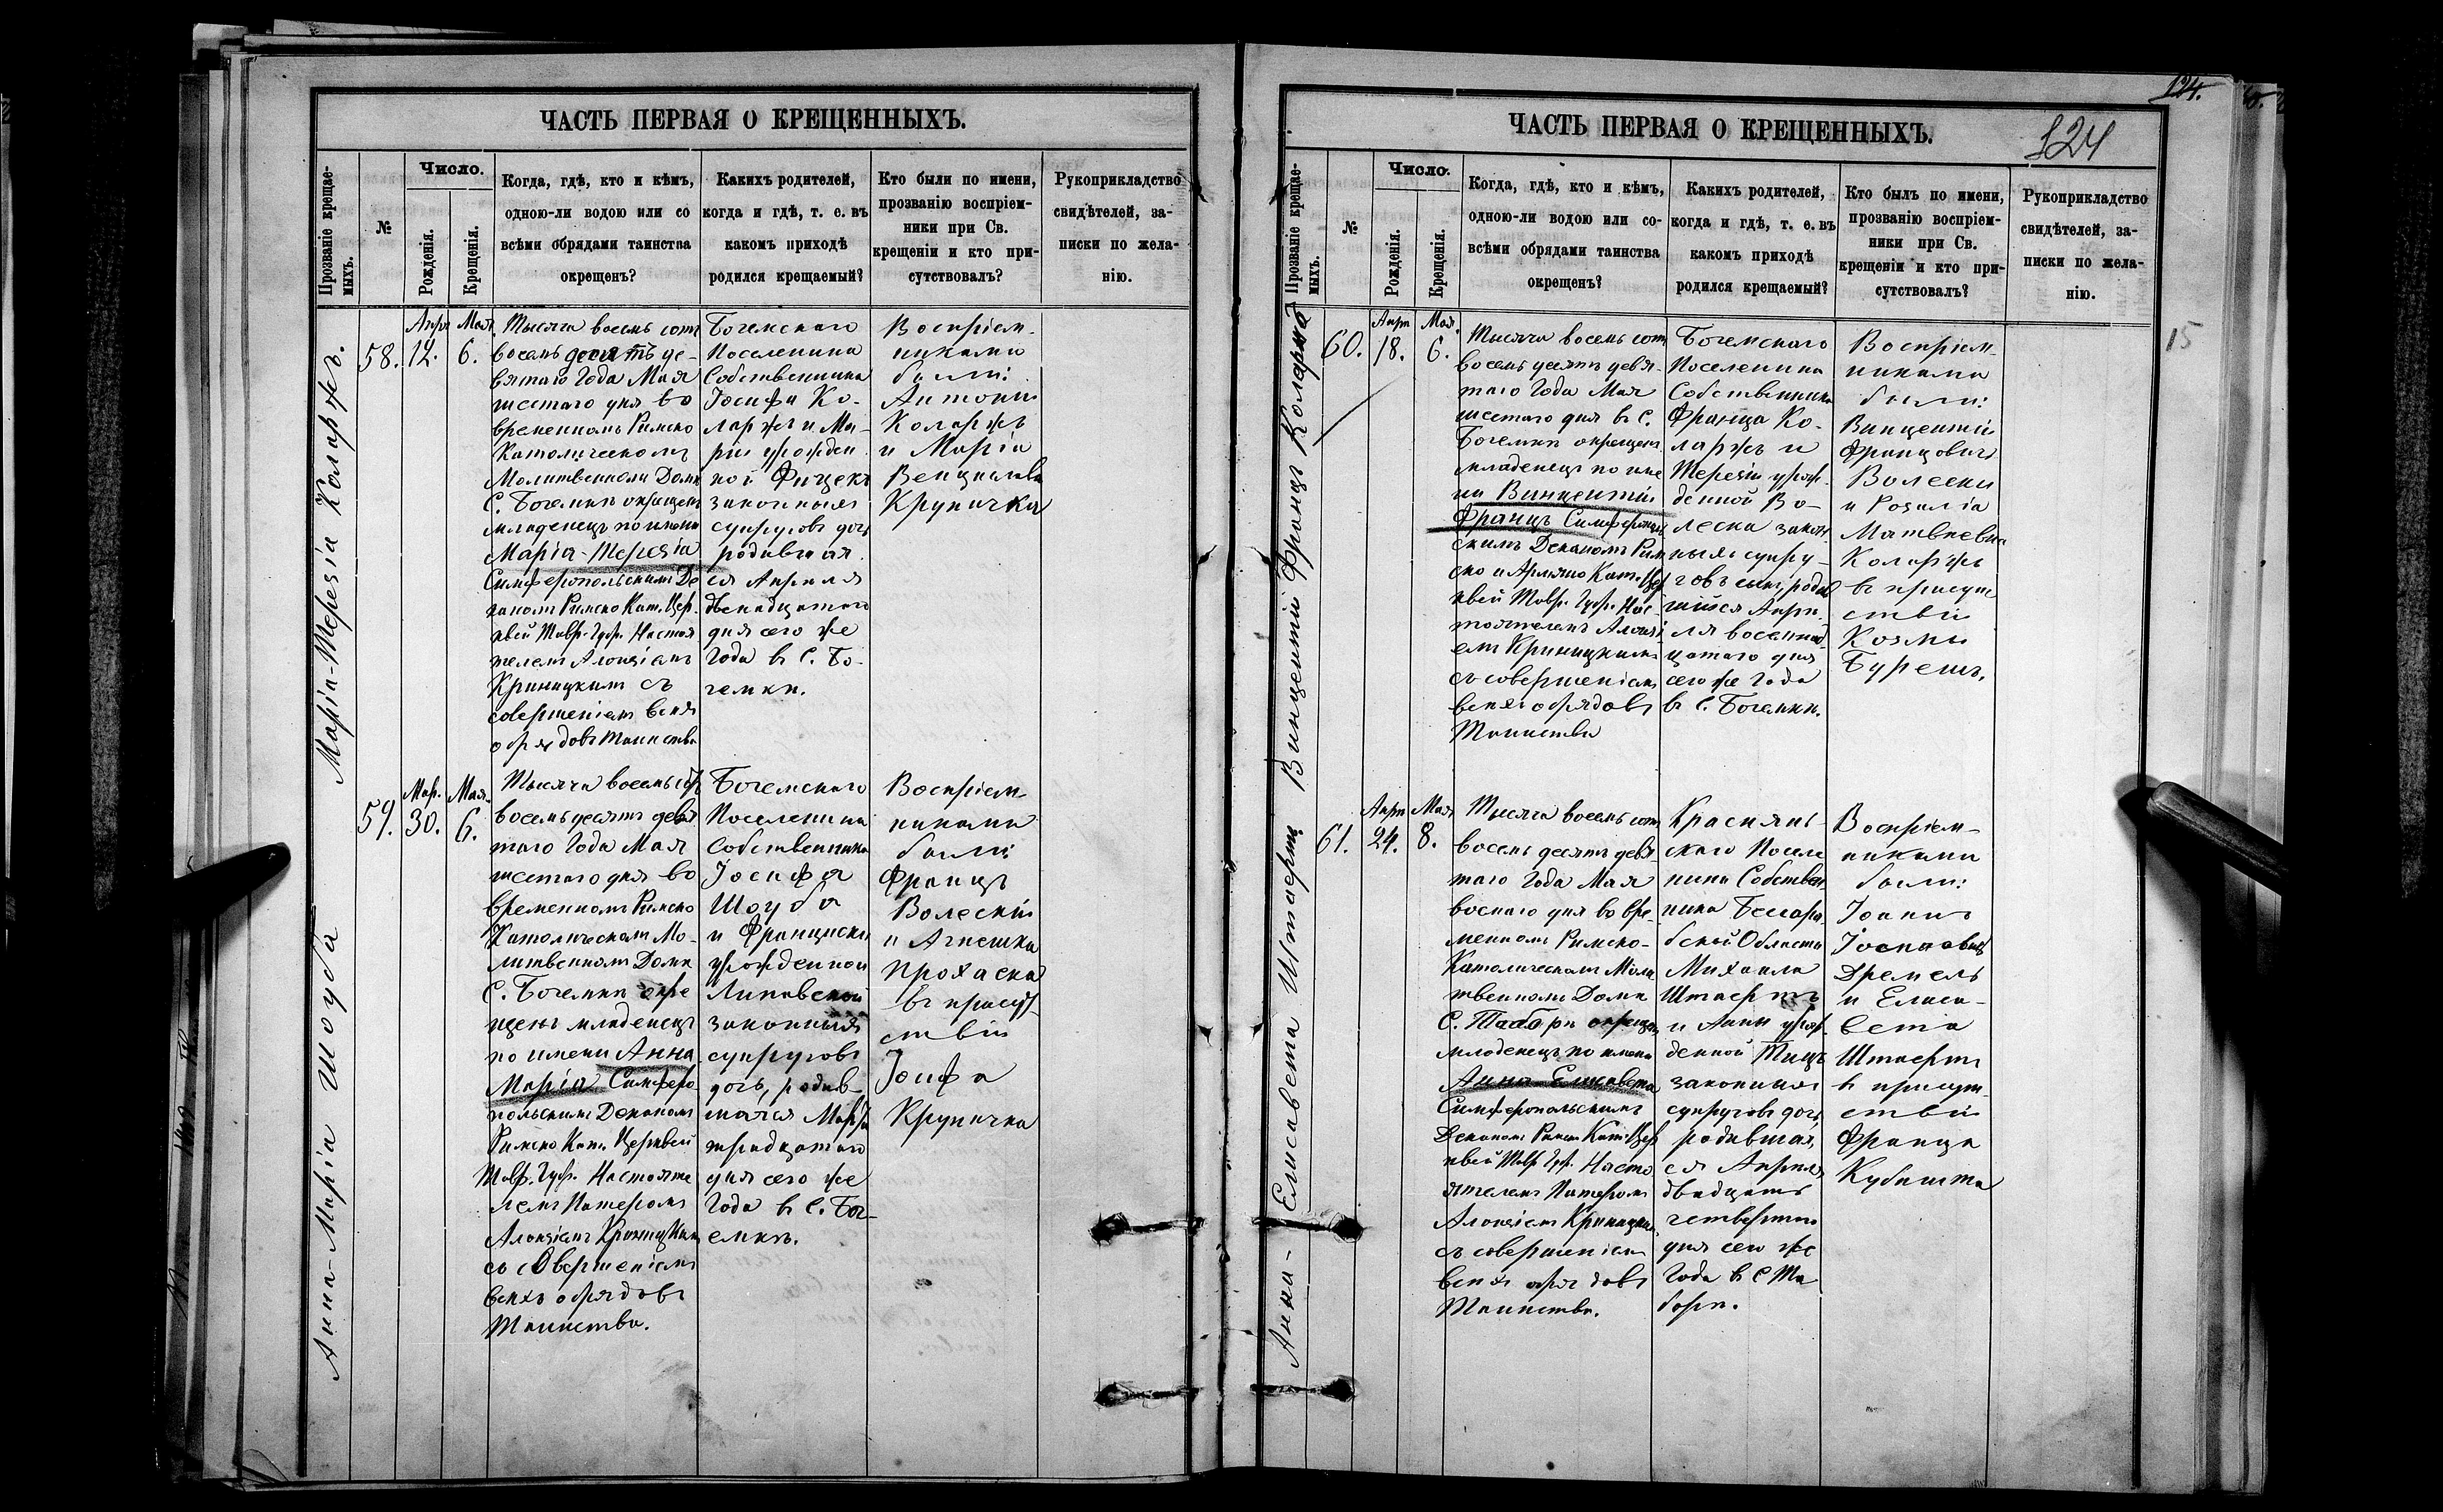 ЧАСТЬ ПЕРВАЯ О КРЕЩЕННЫХЪ.
Прозваніе крещае-
мыхъ.
№
Число.
Рожденія.
Крещенія.
Когда, гдѣ, кто и кѣмъ,
одною-ли водою или со
всѣми обрядами таинства
окрещенъ?
Какихъ родителей,
когда и гдѣ, т. е. въ
какомъ приходѣ
родился крещаемый?
Кто были по имени,
прозванію воспріем-
ники при Св.
крещеніи и кто при-
сутствовалъ?
Рукоприкладство
свидѣтелей, за-
писки по жела-
нію.
Марія-Терезія Коларжъ.
58.
Апр.
12.
Мая
6.
Тысяча восемь сотъ
восемь десятъ де-
вятаго Года Мая
шестаго дня во
временномъ Римско
Католическомъ
Молитвенномъ Домѣ
С. Богемкѣ окрещенъ
младенецъ по имени
Марія-Терезія
Симферопольскимъ Де
каномъ Римско Кат. Цер-
квей Тавр. Губр. Настоя
телемъ Алоизіемъ
Криницкимъ съ
совершеніемъ всѣхъ
обрядовъ Таинства
Богемскаго
Поселенина
Собственника
Іосифа Ко-
ларжъ и Ма-
ріи урожден
ной Фицекъ
законныхъ
супруговъ дочь
родившая
ся Апреля
двенадцатаго
дня сего же
Года въ С. Бо-
гемки.
Воспріем-
никами
были:
Антоній
Коларжъ
и Марія
Венцилова
Крупичка
Анна-Марія Шоуба
59.
Мар.
30.
Мая
6.
Тысяча восемь сотъ
восемь десятъ девя
таго Года Мая
шестаго дня во
временномъ Римско
Католическомъ Мо-
литвенномъ Домѣ
С. Богемкѣ окре
щенъ младенецъ
по имени Анна
Марія Симферо-
польскимъ Деканомъ
Римско Кат. Церквей
Тавр. Губр. Настояте
лемъ Патеромъ
Алоизіемъ Криницкимъ
съ совершеніемъ
всѣхъ обрядовъ
Таинства.
Богемскаго
Поселенина
Собственника
Іосифа
Шоуба
и Франциски
урожденной
Липавской
законныхъ
супруговъ
дочь, родив-
шаяся Марта
тридцатаго
дня сего же
Года въ С. Бог-
емкѣ.
Воспріем-
никами
были:
Францъ
Волескій
и Агнешка
Прохаска
въ присут-
ствіи
Іосифа
Крупичка
ЧАСТЬ ПЕРВАЯ О КРЕЩЕННЫХЪ.
124.
124
15
Прозваніе крещае-
мыхъ.
№
Число.
Рожденія.
Крещенія.
Когда, гдѣ, кто и кѣмъ,
одною-ли водою или со-
всѣми обрядами таинства
окрещенъ?
Какихъ родителей,
когда и гдѣ, т. е. въ
какомъ приходѣ
родился крещаемый?
Кто былъ по имени,
прозванію воспріем-
ники при Св.
крещеніи и кто при-
сутствовалъ?
Рукоприкладство
свидѣтелей, за-
писки по жела-
нію.
Винцентій Францъ Коларжъ
60.
Апр
18.
Мая.
6.
Тысяча восемь сотъ
восемь десятъ девя-
таго Года Мая
шестаго дня въ С.
Богемкѣ окрещенъ
младенецъ по име
ни Винцентій
Францъ Симферополь
скимъ Деканомъ Рим
ско и Армяно Кат. Цер
квей Тавр. Губр. Нас-
тоятелемъ Алоизі
емъ Криницкимъ
съ совершеніемъ
всѣхъ обрядовъ
Таинства
Богемскаго
Поселенина
Собственника
Франца Ко-
ларжъ и
Терезіи урож-
денной Во-
леска закон
ныхъ супру-
говъ сынъ, родив
шійся Апре-
ля восемнад
цатаго дня
сего же Года
въ С. Богемки.
Воспріем-
никами
были:
Винцентій
Францовичъ
Волески
и Розалія
Матвѣевна
Коларжъ
въ присут
ствіи
Козмы
Бурешъ.
Анна-Елисавета Штаертъ
61.
Апр
24.
Мая
8.
Тысяча восемь сотъ
восемь десятъ девя-
таго Года Мая
восмаго дня во вре-
менномъ Римско-
Католическомъ Моли
твенномъ Домѣ
С. Таборѣ окрещенъ
младенецъ по имени
Анна Елисавета
Симферопольскимъ
Деканомъ Римско Кат. Цер
квей Тавр. Губр. Насто
ятелемъ Патеромъ
Алоизіемъ Криницкимъ
съ совершеніемъ
всѣхъ обрядовъ
Таинства.
Краснянс-
скаго Поселе
нина Собствен
ника Бессара
бской Области
Михаила
Штаертъ
и Анны урож
денной Тицъ
законныхъ
супруговъ дочь
родившая
ся Апреля
двадцать
четвертаго
дня сего же
Года въ С Та
борѣ.
Воспріем-
никами
были:
Іоаннъ
Дремель
и Елиса-
вета
Штаертъ
в присут-
ствіи
Франца
Кубишта